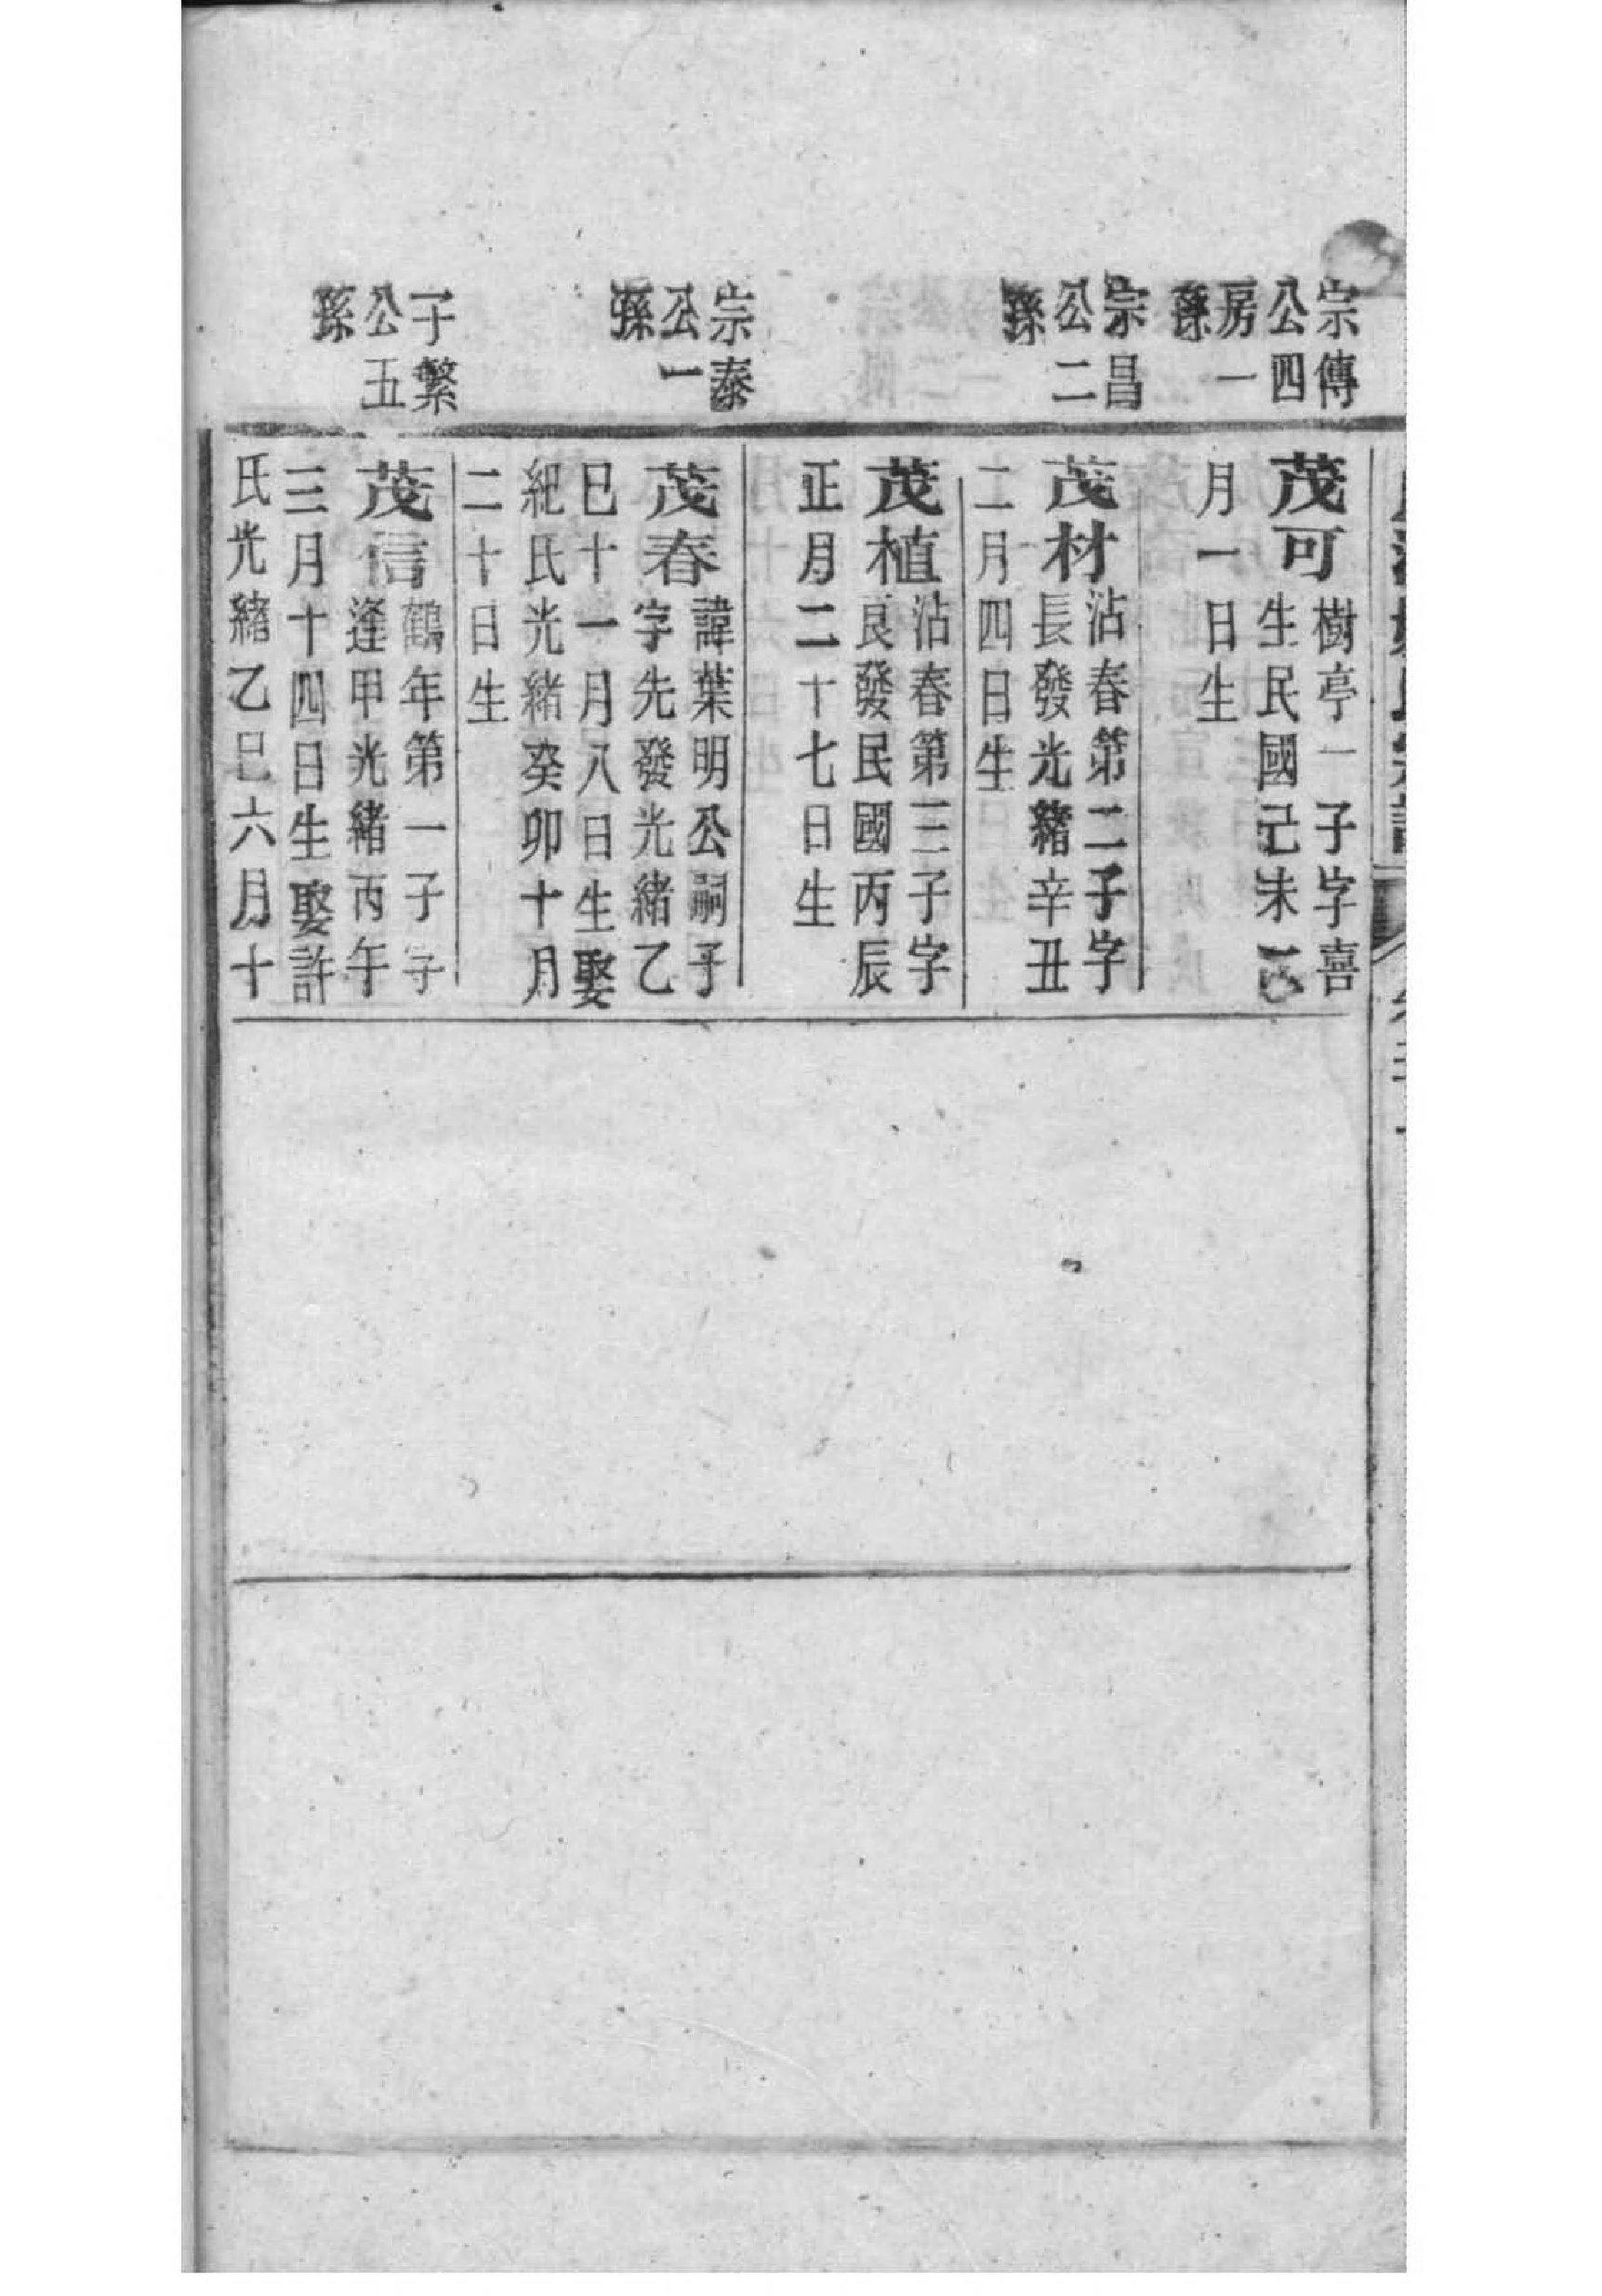 宗傳
公四
房一
孫
宗昌
公二
孫
宗泰
公一
孫
子繁
公五
孫
茂可
樹亭一子字喜
生民國己未
月一日生
茂材
沾春第二子字
長發光緒辛丑
二月四日生
茂植
沾春第三子字
良發民國丙辰
正月二十七日生
茂春
諱葉明公嗣子
字先發光緒乙
巳十一月八日生娶
紀氏光緒癸卯十月
二十日生
茂信
鶴年第一子字
逢甲光緒丙午
三月十四日生娶許
氏光緒乙巳六月十